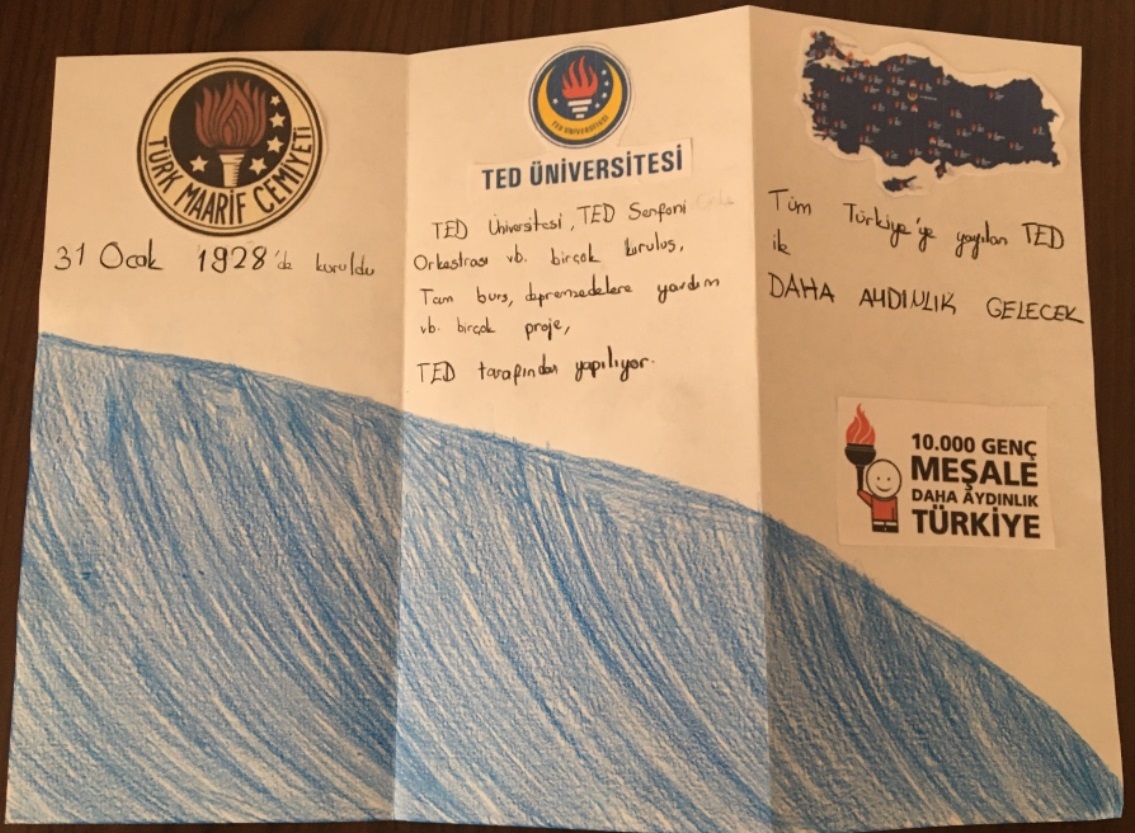 TÜRK MAARİF CEMİYETİ
31 Ocak 1928'de kuruldu
TED ÜNİVERSİTESİ
TED ÜNİVERSİTESİ
TED Üniversitesi, TED Senfoni
Orkestrası vb. birçok kuruluş,
Tam burs, depremzedelere yardım
vb. birçok proje,
TED tarafından yapılıyor.
Tüm Türkiye'ye yayılan TED
ile
DAHA AYDINLIK GELECEK
10.000 GENÇ
MEŞALE
DAHA AYDINLIK
TÜRKİYE